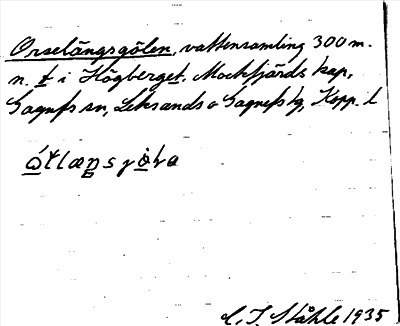 Orselängsgölen, vattensamling 300 m.
n. t i Högberget, Mockfjärds kap,
Gagnefs sn, Leksands o Gagnefs tg, Kopp. l
C. I. Ståhle 1935